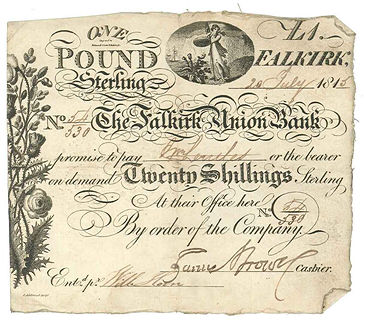 ONE
£1.
POUND
FALKIRK,
Sterling
25 July 1815
No. 54/530 The Falkirk Union Bank
promise to pay or the bearer
on demand Twenty Shillings Sterling
At their Office here
No. 54/530
By order of the Company
Cashier.
Entd. pr.